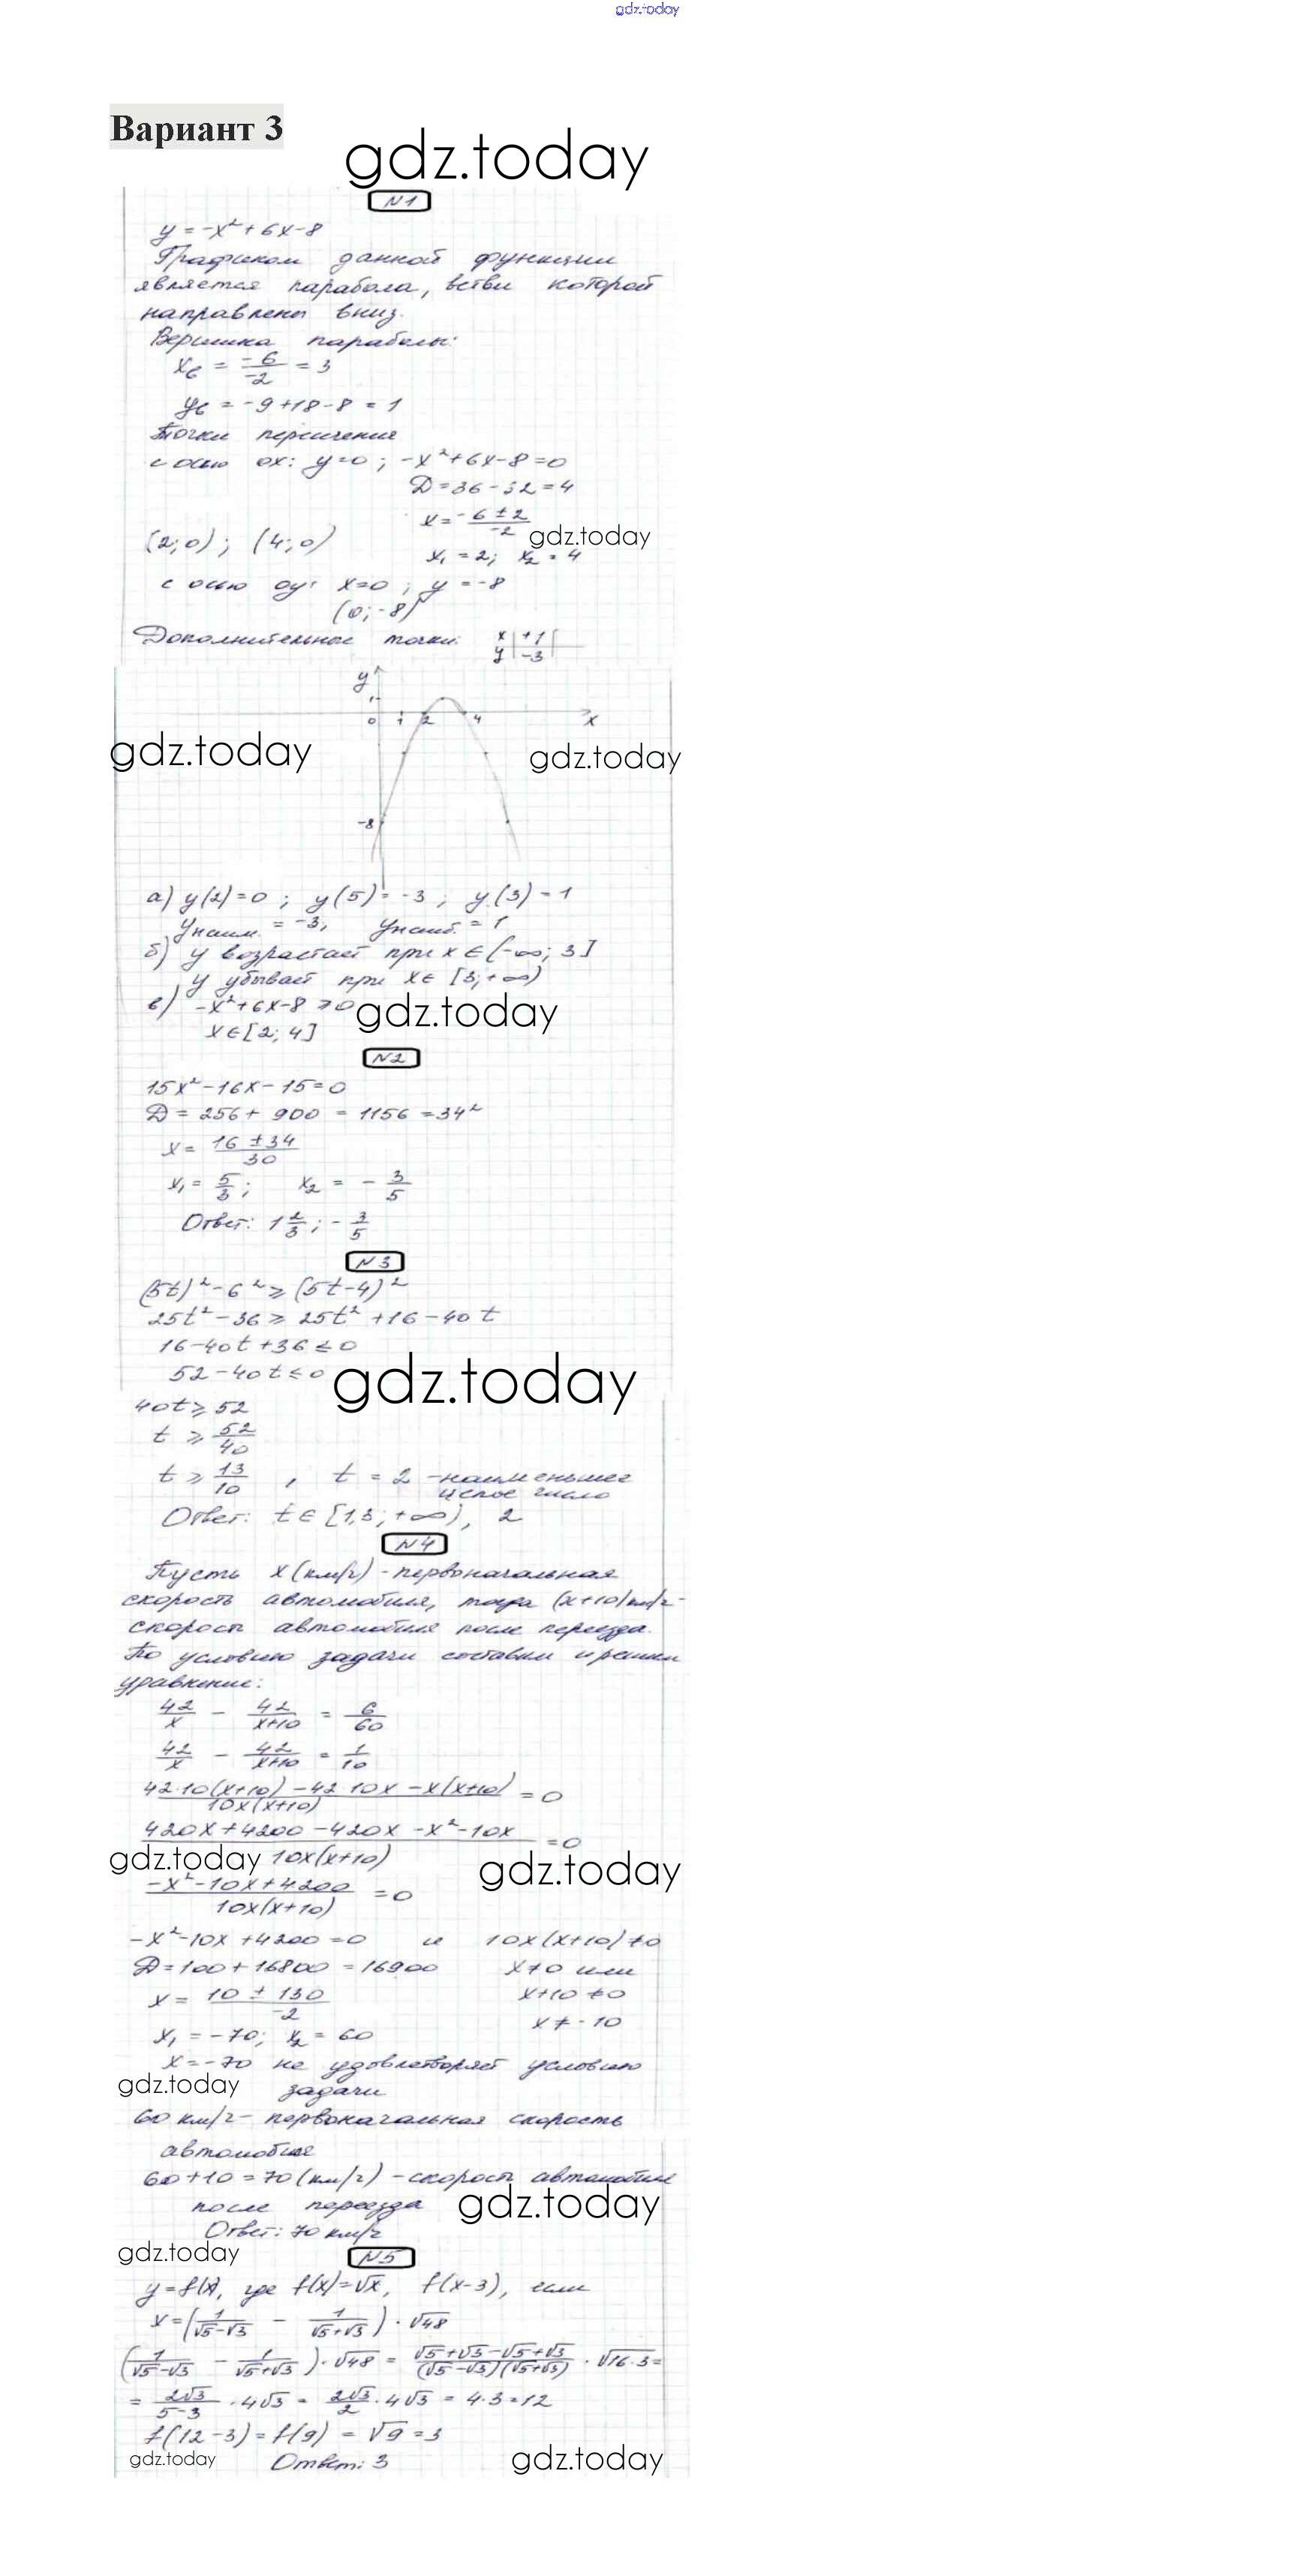 gdz.today
Вариант 3
gdz.today
N1
y = -x² + 6x - 8
Графиком данной функции
является парабола, ветви которой
направлены вниз.
Вершина параболы:
x_в = -6/-2 = 3
y_в = -9 + 18 - 8 = 1
Точки пересечения
с осью ox: y=0; -x²+6x-8=0
D = 36 - 32 = 4
x = (-6 ± 2)/-2
gdz.today
(2;0); (4;0)
x₁ = 2; x₂ = 4
с осью oy: x=0; y = -8
(0; -8)
Дополнительные точки:
x | +1
y | -3
y
1
0 1 2 4 x
gdz.today gdz.today
-8
а) y(2)=0; y(5)= -3; y(3)=1
y наим. = -3; y наиб. = 1
б) y возрастает при x ∈ (-∞; 3]
y убывает при x ∈ [3; +∞)
в) -x²+6x-8 ≥ 0
gdz.today
x ∈ [2; 4]
N2
15x² - 16x - 15 = 0
D = 256 + 900 = 1156 = 34²
x = (16 ± 34)/30
x₁ = 5/3; x₂ = - 3/5
Ответ: 1 2/3; - 3/5
N3
(5t)² - 6² ≥ (5t-4)²
25t² - 36 ≥ 25t² + 16 - 40t
16 - 40t + 36 ≤ 0
52 - 40t ≤ 0
gdz.today
40t ≥ 52
t ≥ 52/40
t ≥ 13/10, t = 2 - наименьшее
целое число
Ответ: t ∈ [1,3; +∞), 2
N4
Пусть x (км/ч) - первоначальная
скорость автомобиля, тогда (x+10) км/ч -
скорость автомобиля после переезда.
По условию задачи составим и решим
уравнение:
42/x - 42/(x+10) = 6/60
42/x - 42/(x+10) = 1/10
(42·10(x+10) - 42·10x - x(x+10))/(10x(x+10)) = 0
(420x + 4200 - 420x - x² - 10x)/(10x(x+10)) = 0
gdz.today gdz.today
(-x² - 10x + 4200)/(10x(x+10)) = 0
-x² - 10x + 4200 = 0 и 10x(x+10) ≠ 0
D = 100 + 16800 = 16900 x ≠ 0 или
x = (10 ± 130)/-2 x+10 ≠ 0
x ≠ -10
x₁ = -70; x₂ = 60
x = -70 не удовлетворяет условию
gdz.today
задачи
60 км/ч - первоначальная скорость
автомобиля
60 + 10 = 70 (км/ч) - скорость автомобиля
после переезда
gdz.today
Ответ: 70 км/ч
gdz.today
N5
y = f(x), где f(x) = √x, f(x-3), если
x = (1/(√5-√3) - 1/(√5+√3)) · √48
(1/(√5-√3) - 1/(√5+√3)) · √48 = (√5+√3-√5+√3)/((√5-√3)(√5+√3)) · √16·3 =
= 2√3/(5-3) · 4√3 = 2√3/2 · 4√3 = 4·3 = 12
f(12-3) = f(9) = √9 = 3
gdz.today
Ответ: 3
gdz.today